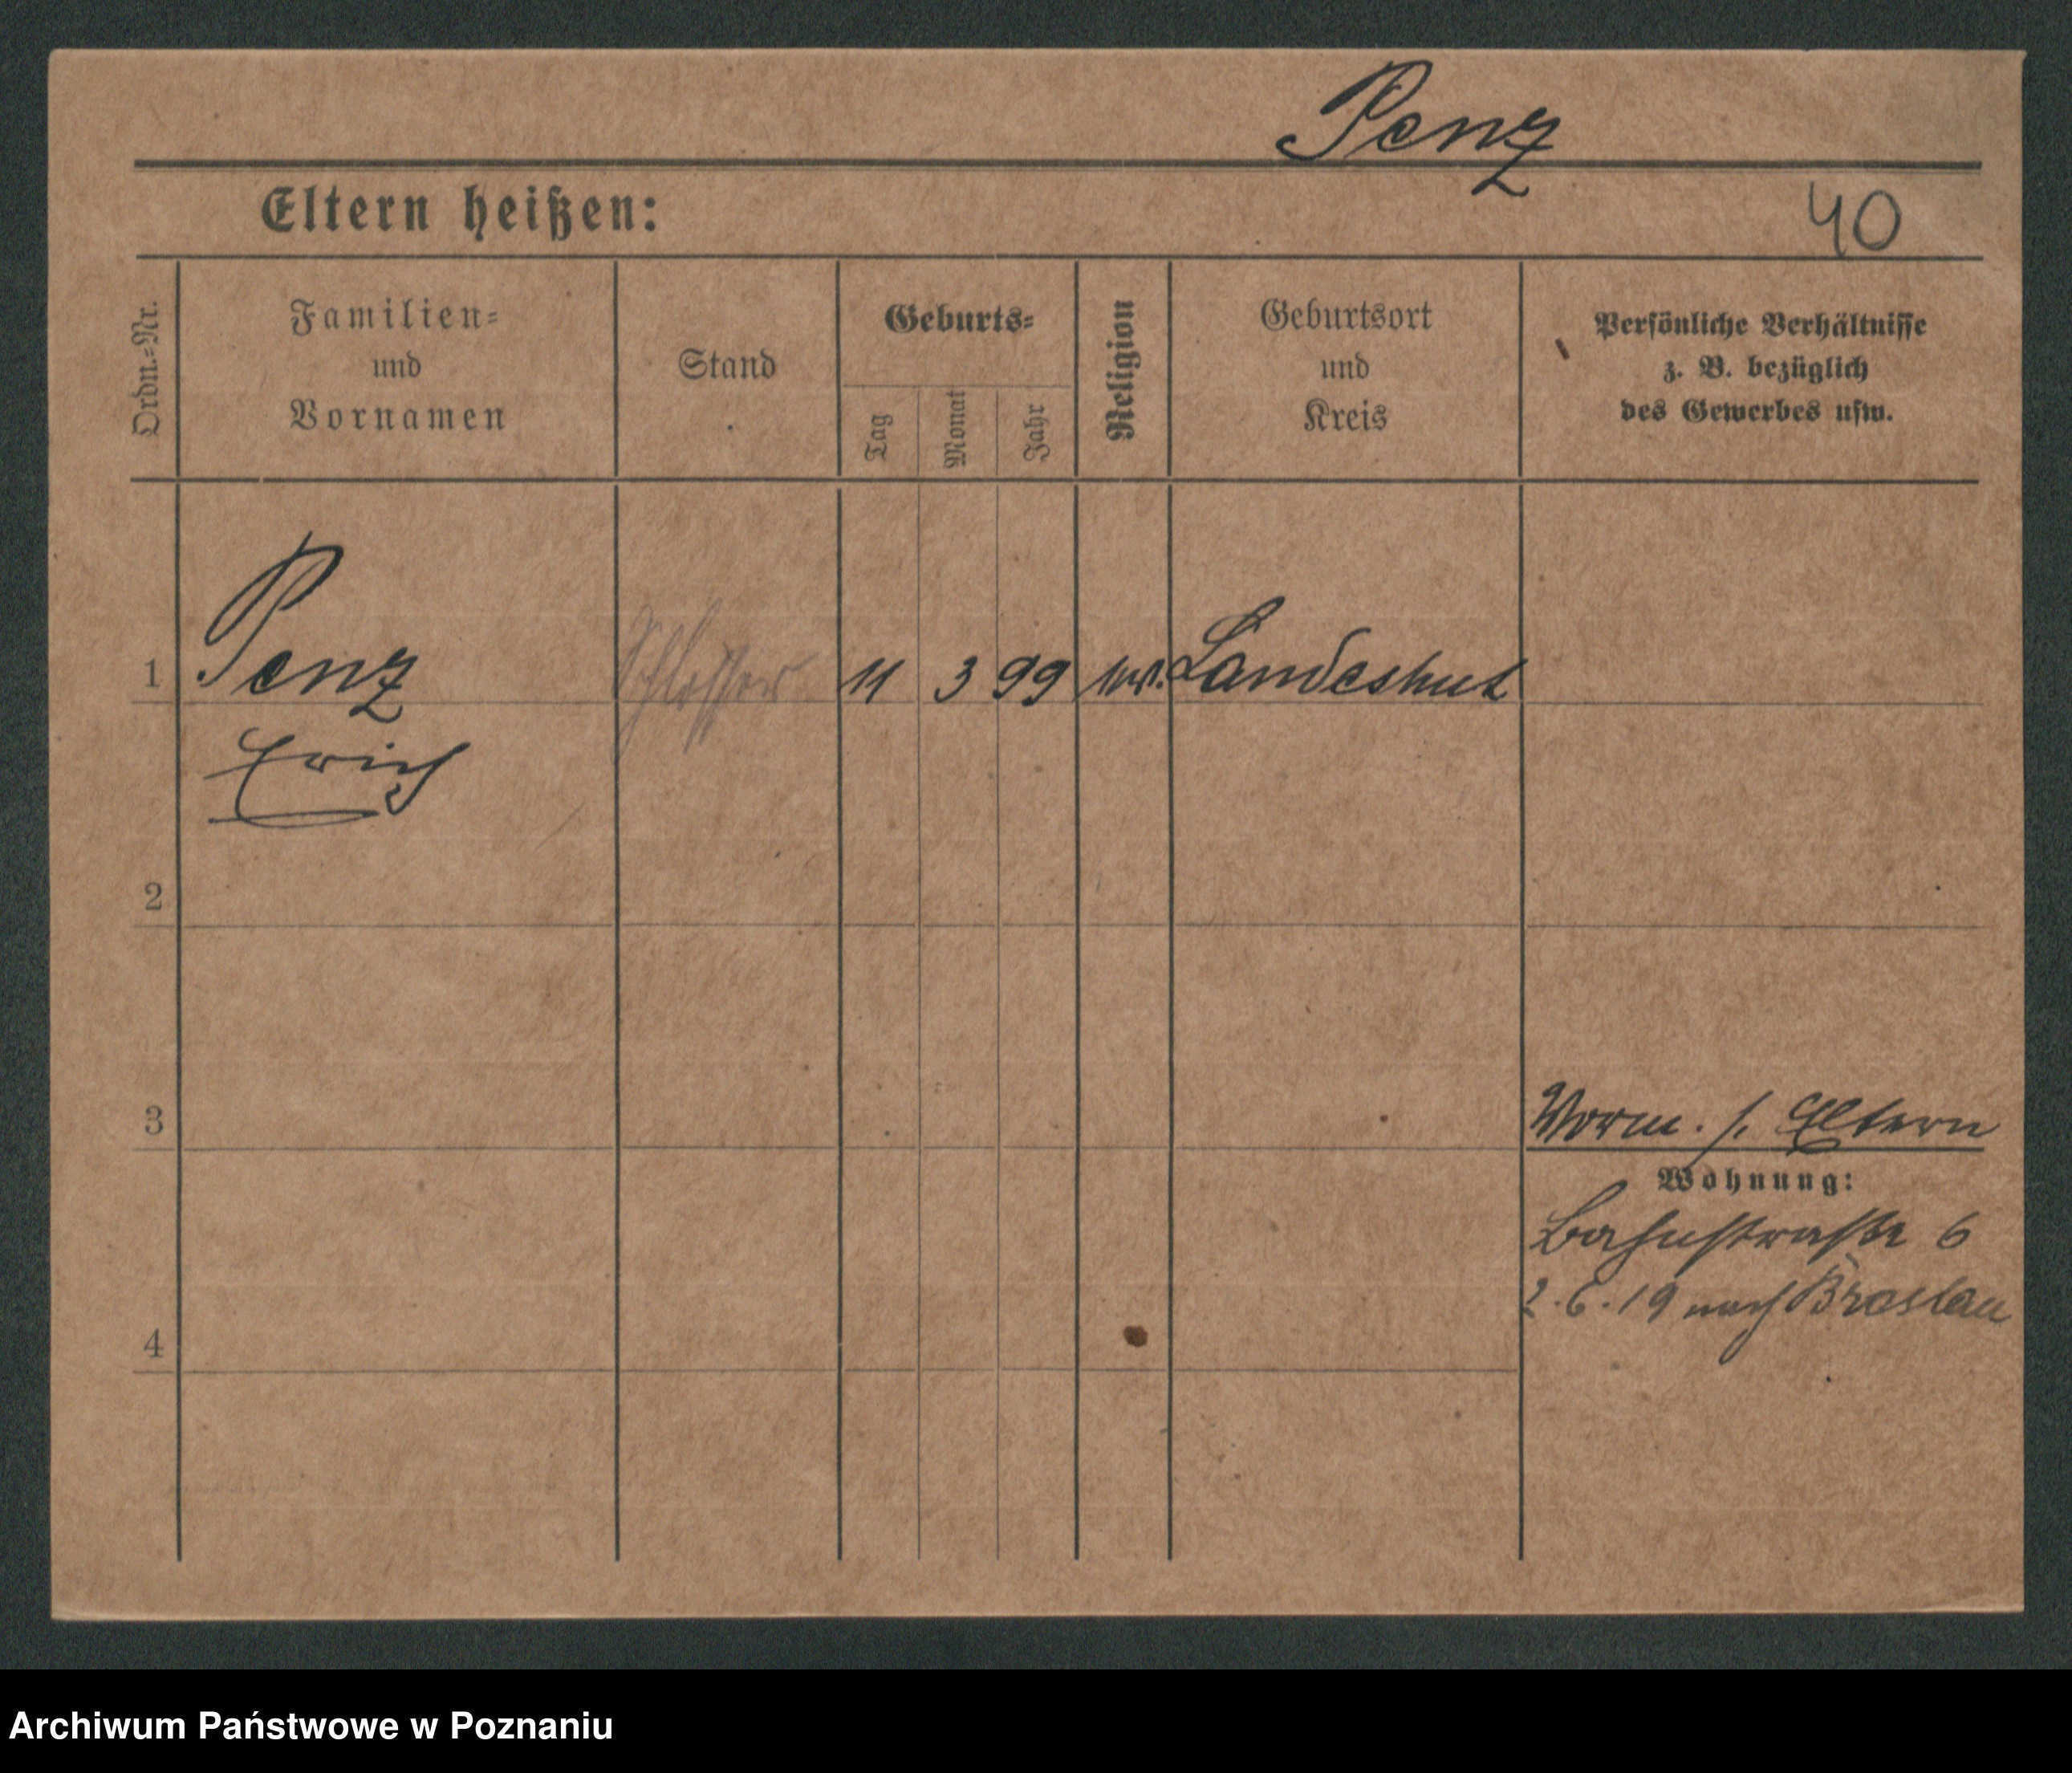 Penz
Eltern heißen:
40
Ordn.=Nr.
Familien=
und
Vornamen
Stand
Geburts=
Tag
Monat
Jahr
Religion
Geburtsort
und
Kreis
Persönliche Verhältnisse
z. B. bezüglich
des Gewerbes usw.
1 Penz Schlosser 11 3 99 Landeshut
Erich
2
3
Vorm. s. Eltern
Wohnung:
Bahnstraße 6
2.6.19 nach Breslau
4
Archiwum Państwowe w Poznaniu